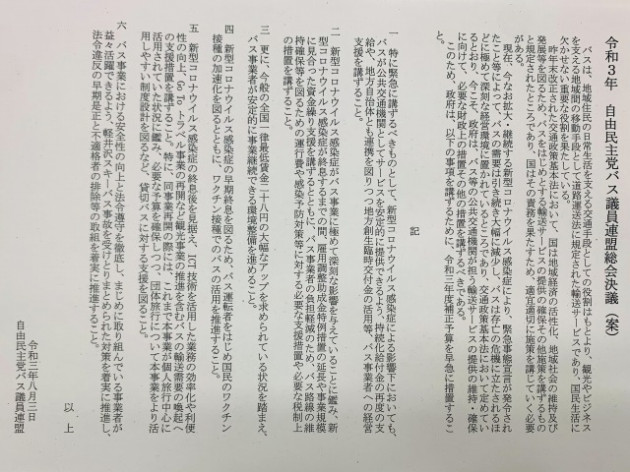 令和3年　自由民主党バス議員連盟総会決議（案）
バスは、地域住民の日常生活を支える交通手段としての役割はもとより、観光やビジネス
を支える地域間の移動手段として道路運送法に規定された輸送サービスであり、国民生活に
欠かせない重要な役割を果たしている。
昨年末改正された交通政策基本法において、国は地域経済の活性化、地域社会の維持及び
発展等を図るため、バスをはじめとする輸送サービスの提供の確保その他施策を講ずるもの
と規定されたところであり、国はその責務を果たすため、適宜適切に施策を講じていく必要
がある。
現在、今なお拡大・継続する新型コロナウイルス感染症により、緊急事態宣言が発令され
たこと等によって、バスの需要は引き続き大幅に減少し、バスは存亡の危機に立たされるほ
どに極めて深刻な経営環境に置かれているところであり、交通政策基本法において定めてい
るとおり、今こそ、政府は、バス等の公共交通機関が担う輸送サービスの提供の維持・確保
に向けて、必要な財政上の措置その他の措置を講ずるべきである。
このため、政府は、以下の事項を講ずるために、令和三年度補正予算を早急に措置するこ
と。
記
一　特に緊急に講ずるべきものとして、新型コロナウイルス感染症による影響下においても、
バスが公共交通機関としてサービスを安定的に提供できるよう、持続化給付金の再度の支
給や、地方自治体とも連携を図りつつ地方創生臨時交付金の活用等、バス事業者への経営
支援を講ずること。
二　新型コロナウイルス感染症がバス事業に極めて深刻な影響を与えていることに鑑み、新
型コロナウイルス感染症が終息するまでの間、雇用調整助成金特例措置の延長や事業規模
に見合った資金繰り支援を講ずるとともに、バス事業者の負担軽減のため、バス路線の維
持確保等を図るための運行費や感染予防対策等に対する必要な支援措置や必要な税制上
の措置を講ずること。
三　更に、今般の全国一律最低賃金二十八円の大幅なアップを求められている状況を踏まえ、
バス事業者が安定的に事業継続できる環境整備を進めること。
四　新型コロナウイルス感染症の早期終息を図るため、バス運転者をはじめ国民のワクチン
接種の加速化を図るとともに、ワクチン接種でのバスの活用を推進すること。
五　新型コロナウイルス感染症の終息後を見据え、ICT技術を活用した業務の効率化や利便
性の向上、Go Toトラベル事業の再開など観光事業の推進を含むバスの輸送需要の喚起へ
の支援措置を講ずること。特に、同事業再開の際には、これまで本事業が個人旅行中心に
活用されていた状況に鑑み、必要な予算を確保しつつ、団体旅行について本事業をより活
用しやすい制度設計を図るなど、貸切バスに対する支援を図ること。
六　バス事業における安全性の向上と法令遵守を徹底し、まじめに取り組んでいる事業者が
益々活躍できるよう、軽井沢スキーバス事故を受けとりまとめられた対策を着実に推進し、
法令違反の早期是正と不適格者の排除等の取組を着実に推進すること。
以上
令和三年八月三日
自由民主党バス議員連盟